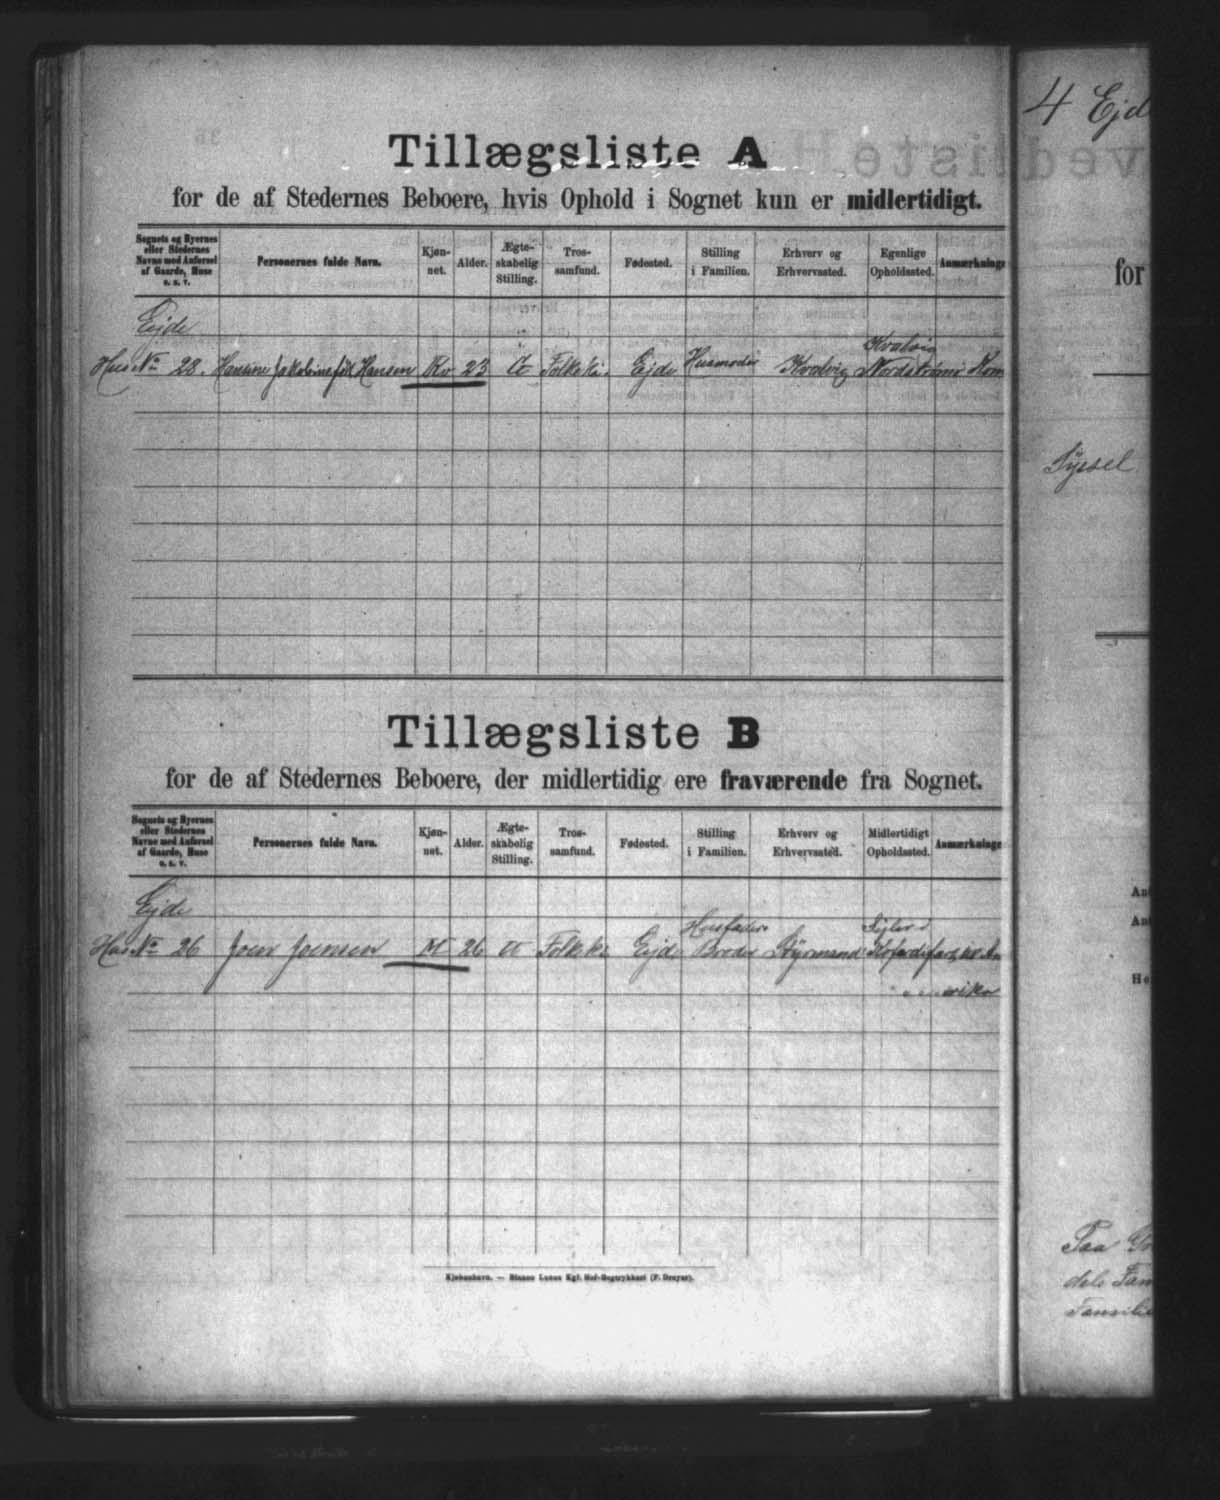 Tillægsliste A
for de af Stedernes Beboere, hvis Ophold i Sognet kun er midlertidigt.
Sognets og Byernes eller Stedernes Navne med Anførsel af Gaarde, Huse o. s. v.
Personernes fulde Navn.
Kjøn-net.
Alder.
Ægte-skabelig Stilling.
Tros-samfund.
Fødested.
Stilling i Familien.
Erhverv og Erhvervssted.
Egenlige Opholdssted.
Anmærkninge
Ejde
Hus No 28. Hansine Jakobine født Hansen Kv 23 G Folkeki. Ejde Husmoder Kvalvig Kvalvig Nordstrømø
Tillægsliste B
for de af Stedernes Beboere, der midlertidig ere fraværende fra Sognet.
Sognets og Byernes eller Stedernes Navne med Anførsel af Gaarde, Huse o. s. v.
Personernes fulde Navn.
Kjøn-net.
Alder.
Ægte-skabelig Stilling.
Tros-samfund.
Fødested.
Stilling i Familien.
Erhverv og Erhvervssted.
Midlertidigt Opholdssted.
Anmærkninge
Ejde
Hus No 26 Joen Joensen M 26 U Folkeki Ejde Husfaders Broder Styrmand Sejler i
Kjøbenhavn. — Bianco Lunos Kgl. Hof-Bogtrykkeri (F. Dreyer).
4 Ejd
for
Syssel